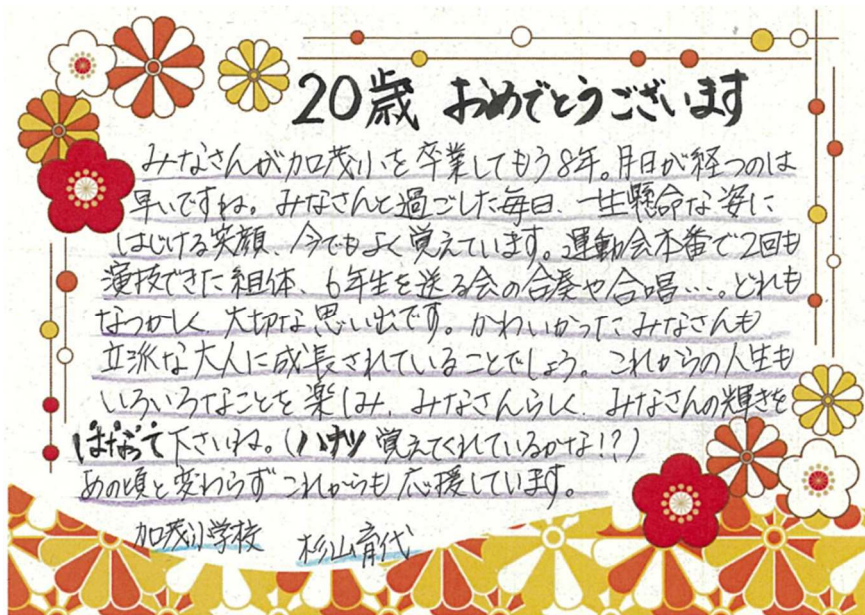 20歳 おめでとうございます
みなさんが加茂小を卒業してもう8年。月日が経つのは
早いですね。みなさんと過ごした毎日、一生懸命な姿に
はじける笑顔、今でもよく覚えています。運動会本番で2回も
演技できた組体、6年生を送る会の合奏や合唱…。どれも
なつかしく、大切な思い出です。かわいかったみなさんも
立派な大人に成長されていることでしょう。これからの人生も
いろいろなことを楽しみ、みなさんらしく、みなさんの輝きを
はなって下さいね。(ハナツ 覚えてくれているかな!?)
あの頃と変わらず これからも応援しています。
加茂小学校 杉山育代